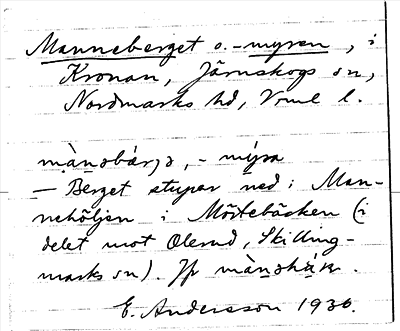 Manneberget o. -myren, i
Kronan, Järnskogs sn,
Nordmarks hd, Vrml l.
mànəbár̨jə, - mýra
— Berget stupar ned i Man-
nehöljen i Mörtebäcken (i
delet mot Olerud, Skilling-
marks sn). Jfr
E. Andersson 1936.